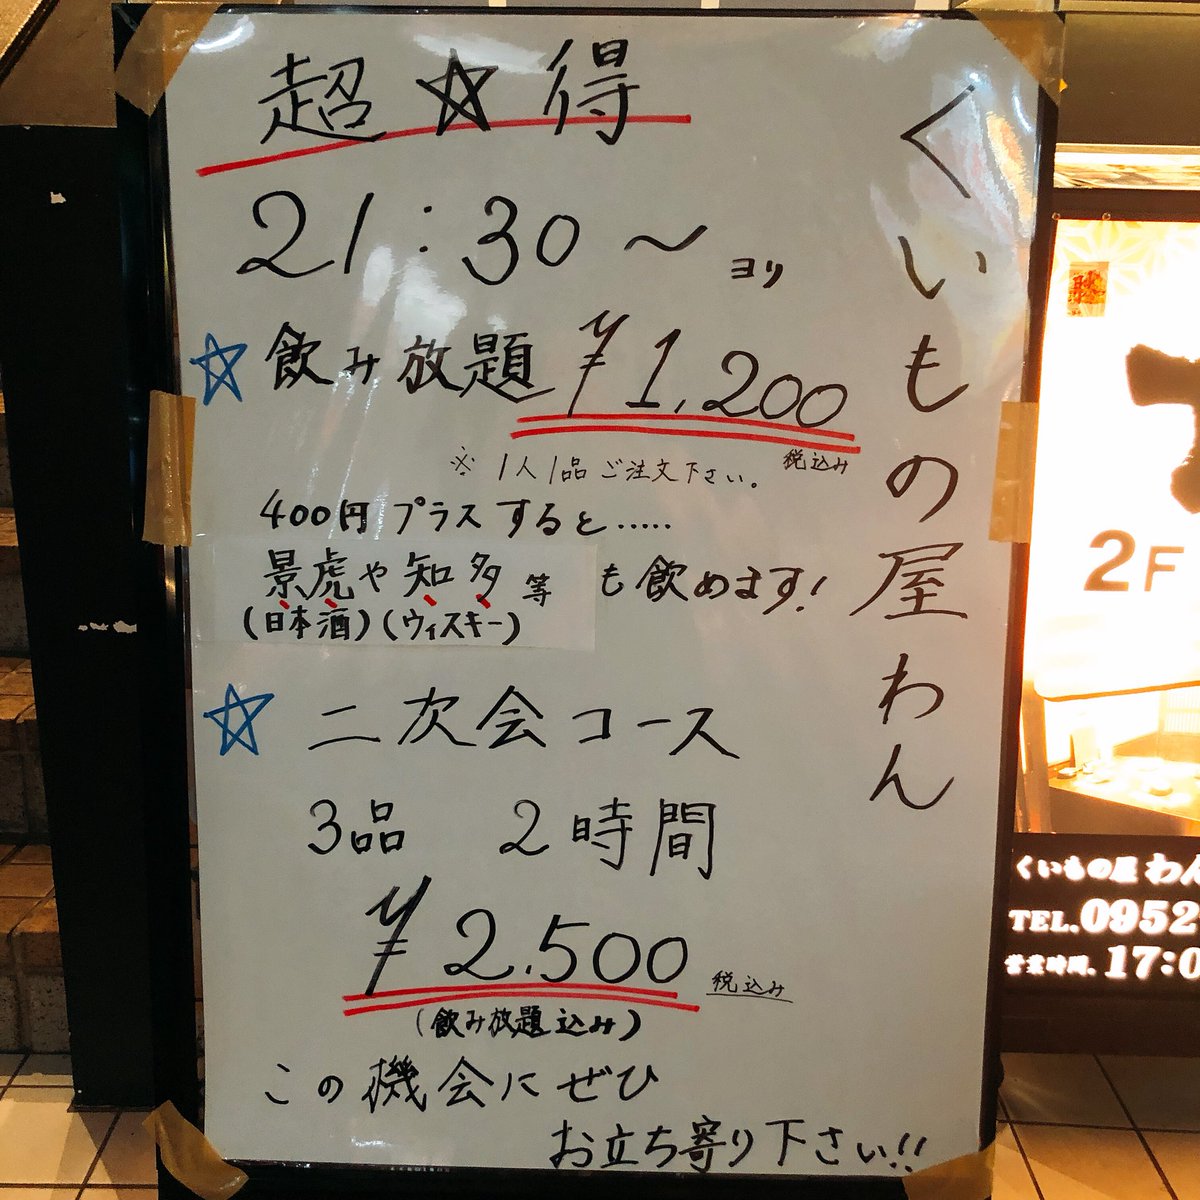 くいもの屋わん
超☆得
21:30〜ヨリ
☆飲み放題 ¥1,200
税込み
※1人1品ご注文下さい。
400円プラスすると……
景虎や知多等も飲めます!
(日本酒)(ウィスキー)
☆二次会コース
3品 2時間
¥2.500 税込み
(飲み放題込み)
この機会にぜひ
お立ち寄り下さい!!
2F
くいもの屋 わん
TEL.0952
営業時間.17:0